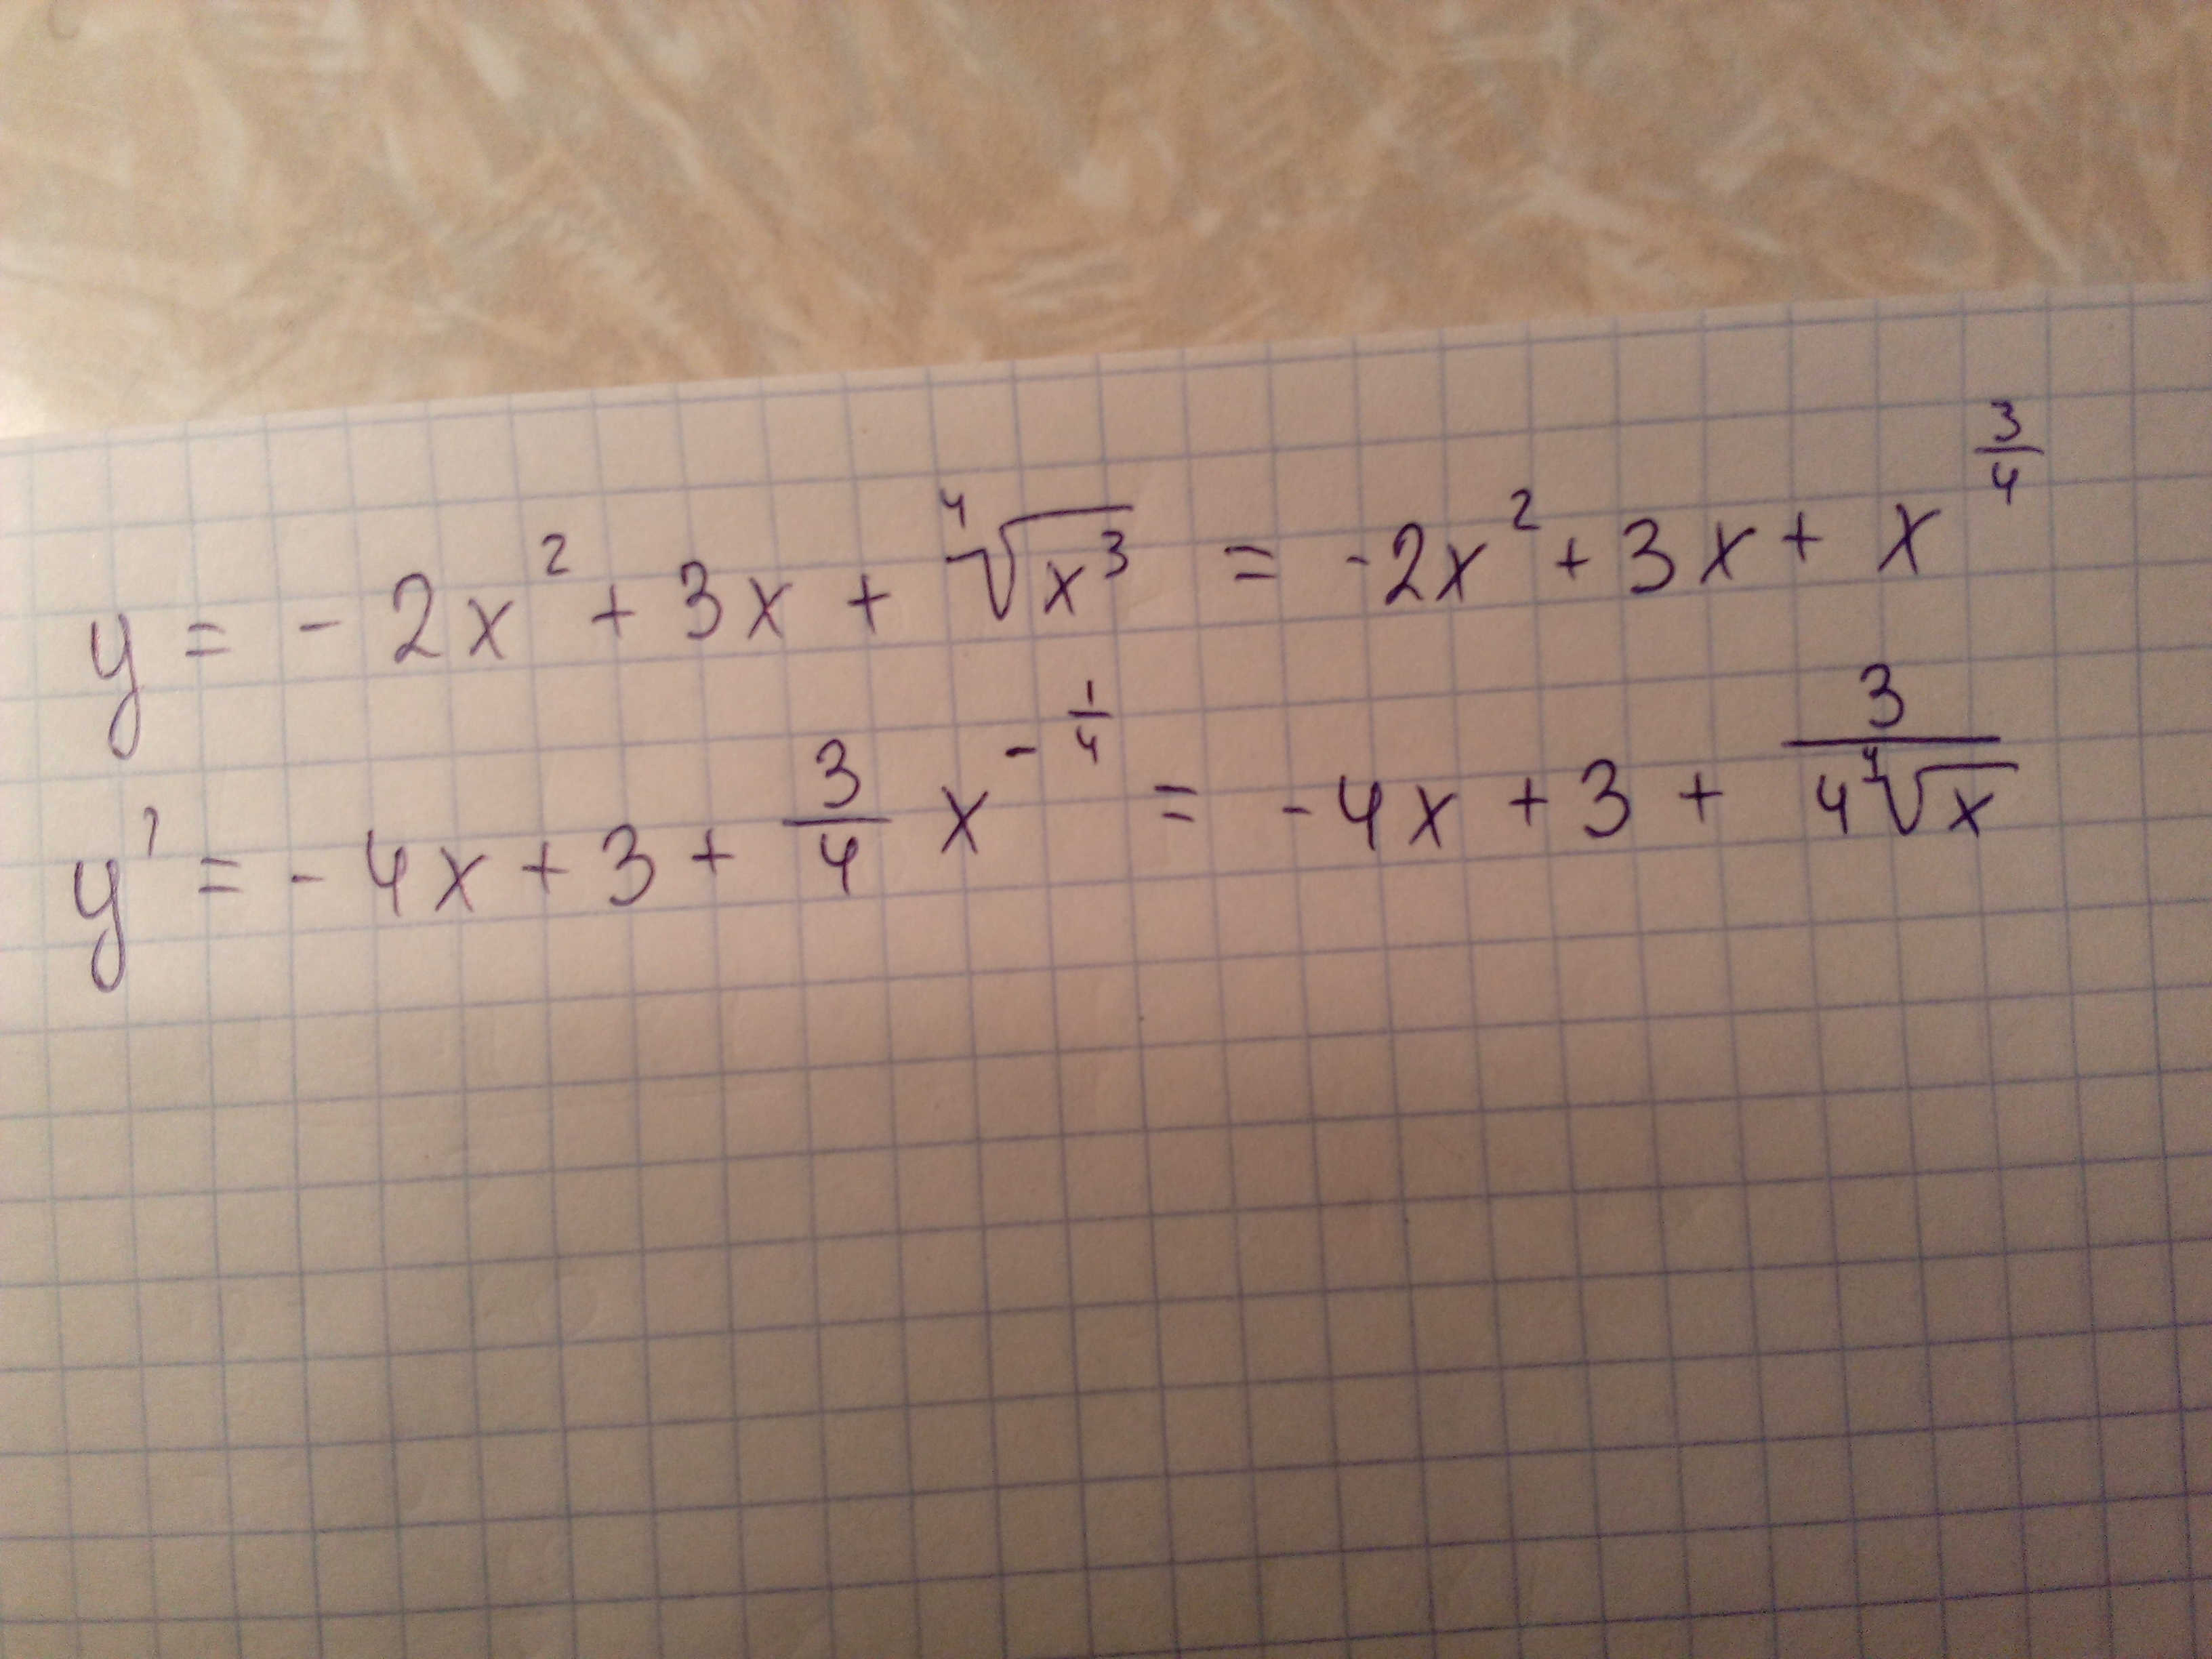 y = - 2x² + 3x + ⁴√(x³) = - 2x² + 3x + x^(3/4)
y' = - 4x + 3 + 3/4 x^(-1/4) = - 4x + 3 + 3/(4 ⁴√x)